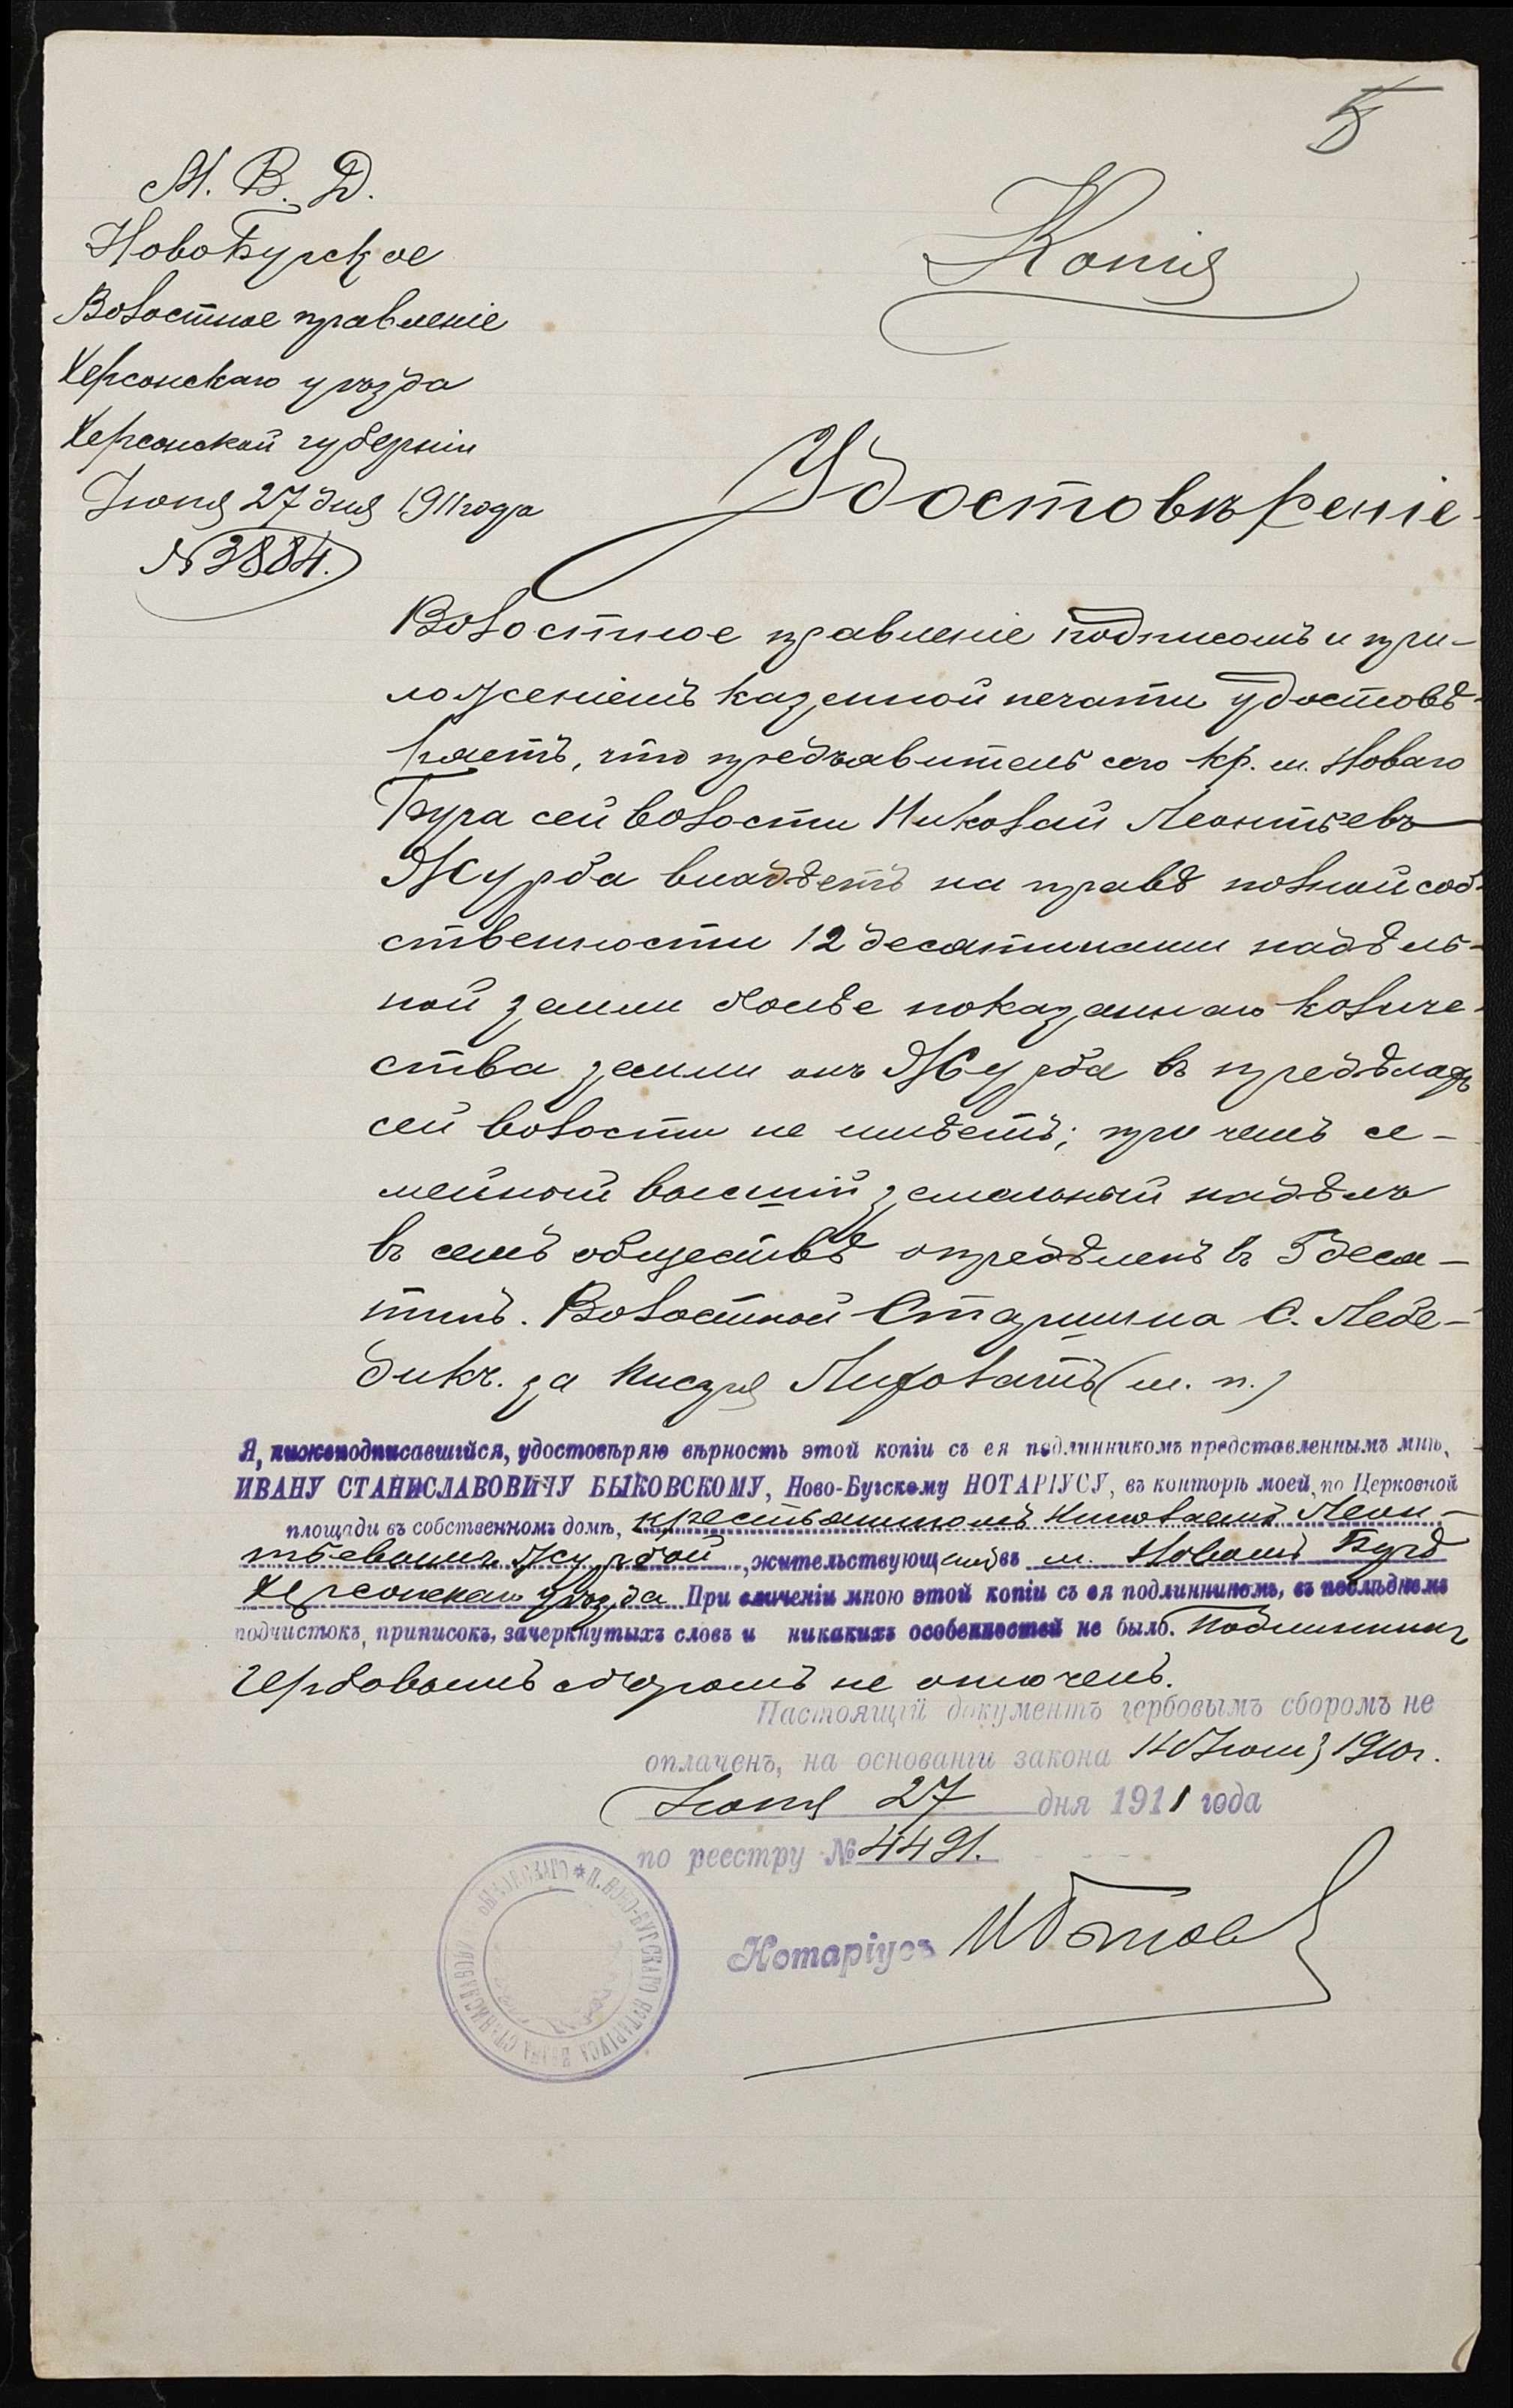 5
М. В. Д.
НовоБугское
Волостное правленіе
Херсонскаго уѣзда
Херсонской губерніи
Іюня 27 дня 1911 года
№ 3884.
Копія
Удостовѣреніе
Волостное правленіе подписомъ и при-
ложеніемъ казенной печати удостовѣ-
ряетъ, что предъявитель сего кр. м. Новаго
Буга сей волости Николай Леонтьевъ
Журба владѣетъ на правѣ полной соб-
ственности 12 десятинами надѣль-
ной земли болѣе показаннаго количе-
ства земли онъ Журба въ предѣлахъ
сей волости не имѣетъ; при чемъ се-
мейный высшій земельный надѣлъ
въ семъ обществѣ опредѣленъ въ 5 деся-
тинъ. Волостной Старшина С. Лебе-
дикъ. за Писаря Лиховатъ (м. п.)
Я, нижеподписавшійся, удостовѣряю вѣрность этой копіи съ ея подлинникомъ представленнымъ мнѣ,
ИВАНУ СТАНИСЛАВОВИЧУ БЫКОВСКОМУ, Ново-Бугскому НОТАРІУСУ, въ конторѣ моей, по Церковной
площади въ собственномъ домѣ, крестьяниномъ Николаемъ Леон-
тьевымъ Журбой, жительствующимъ въ м. Новомъ Бугѣ
Херсонскаго уѣзда При сличеніи мною этой копіи съ ея подлинникомъ, въ послѣднемъ
подчистокъ, приписокъ, зачеркнутыхъ словъ и никакихъ особенностей не было. Подлинникъ
гербовымъ сборомъ не оплоченъ.
Настоящій документъ гербовымъ сборомъ не
оплаченъ, на основаніи закона 14 Іюня 1910 г.
Іюня 27 дня 1911 года
по реестру № 4491.
Нотаріусъ
* П. НОВО-БУГСКАГО НОТАРІУСА ИВАНА СТАНИСЛАВОВ. БЫКОВСКАГО